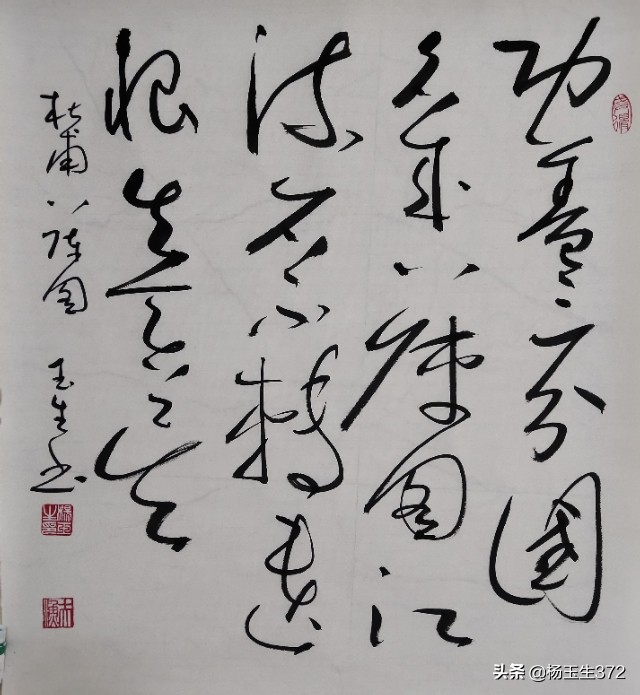 功蓋三分國
名成八陣图江
流石不轉遺
恨失吞吳
杜甫八陣图 玉生书
头条 @杨玉生372